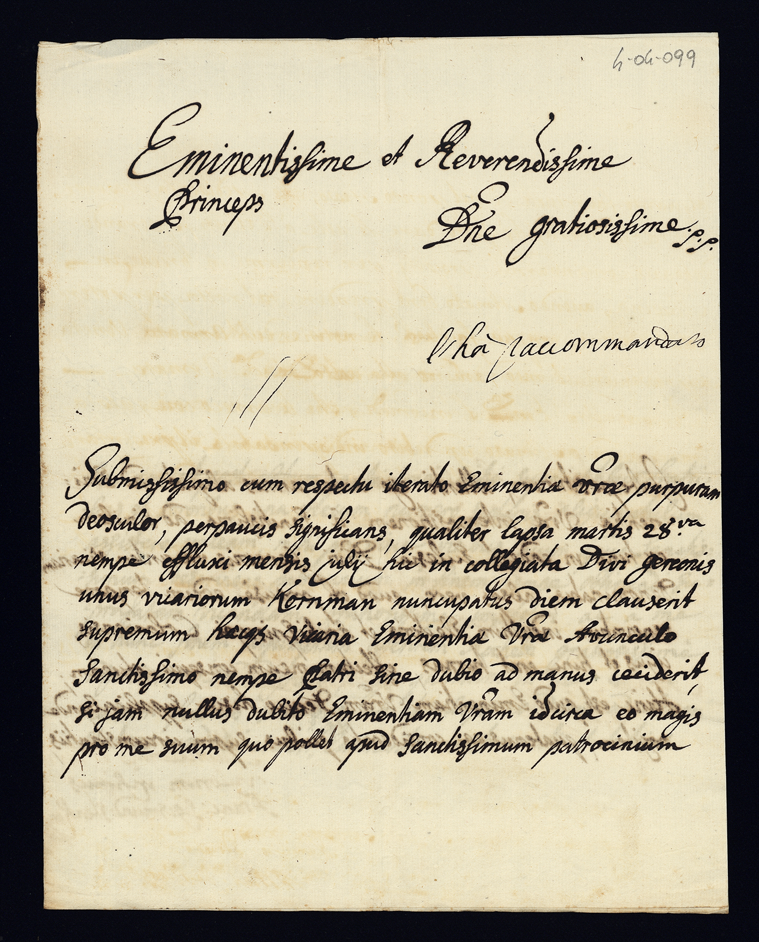 4-04-099
Eminentissime et Reverendissime
Princeps
Dne gratiosissime p.p.
Submississimo cum respectu iterato Eminentiæ vræ purpuram
deosculor, perpaucis significans, qualiter lapsa martis 28va
nempe effluxi mensis julij hic in collegiata Divi gereonis
unus vicariorum Kornman nuncupatus diem clauserit
supremum vicaria Eminentiæ Vræ Avunculo
Sanctissimo nempe Patri sine dubio ad manus ceciderit,
si jam nullus dubito Eminentiam Vram idcirca eo magis
pro me suum quo pollet apud Sanctissimum patrocinium